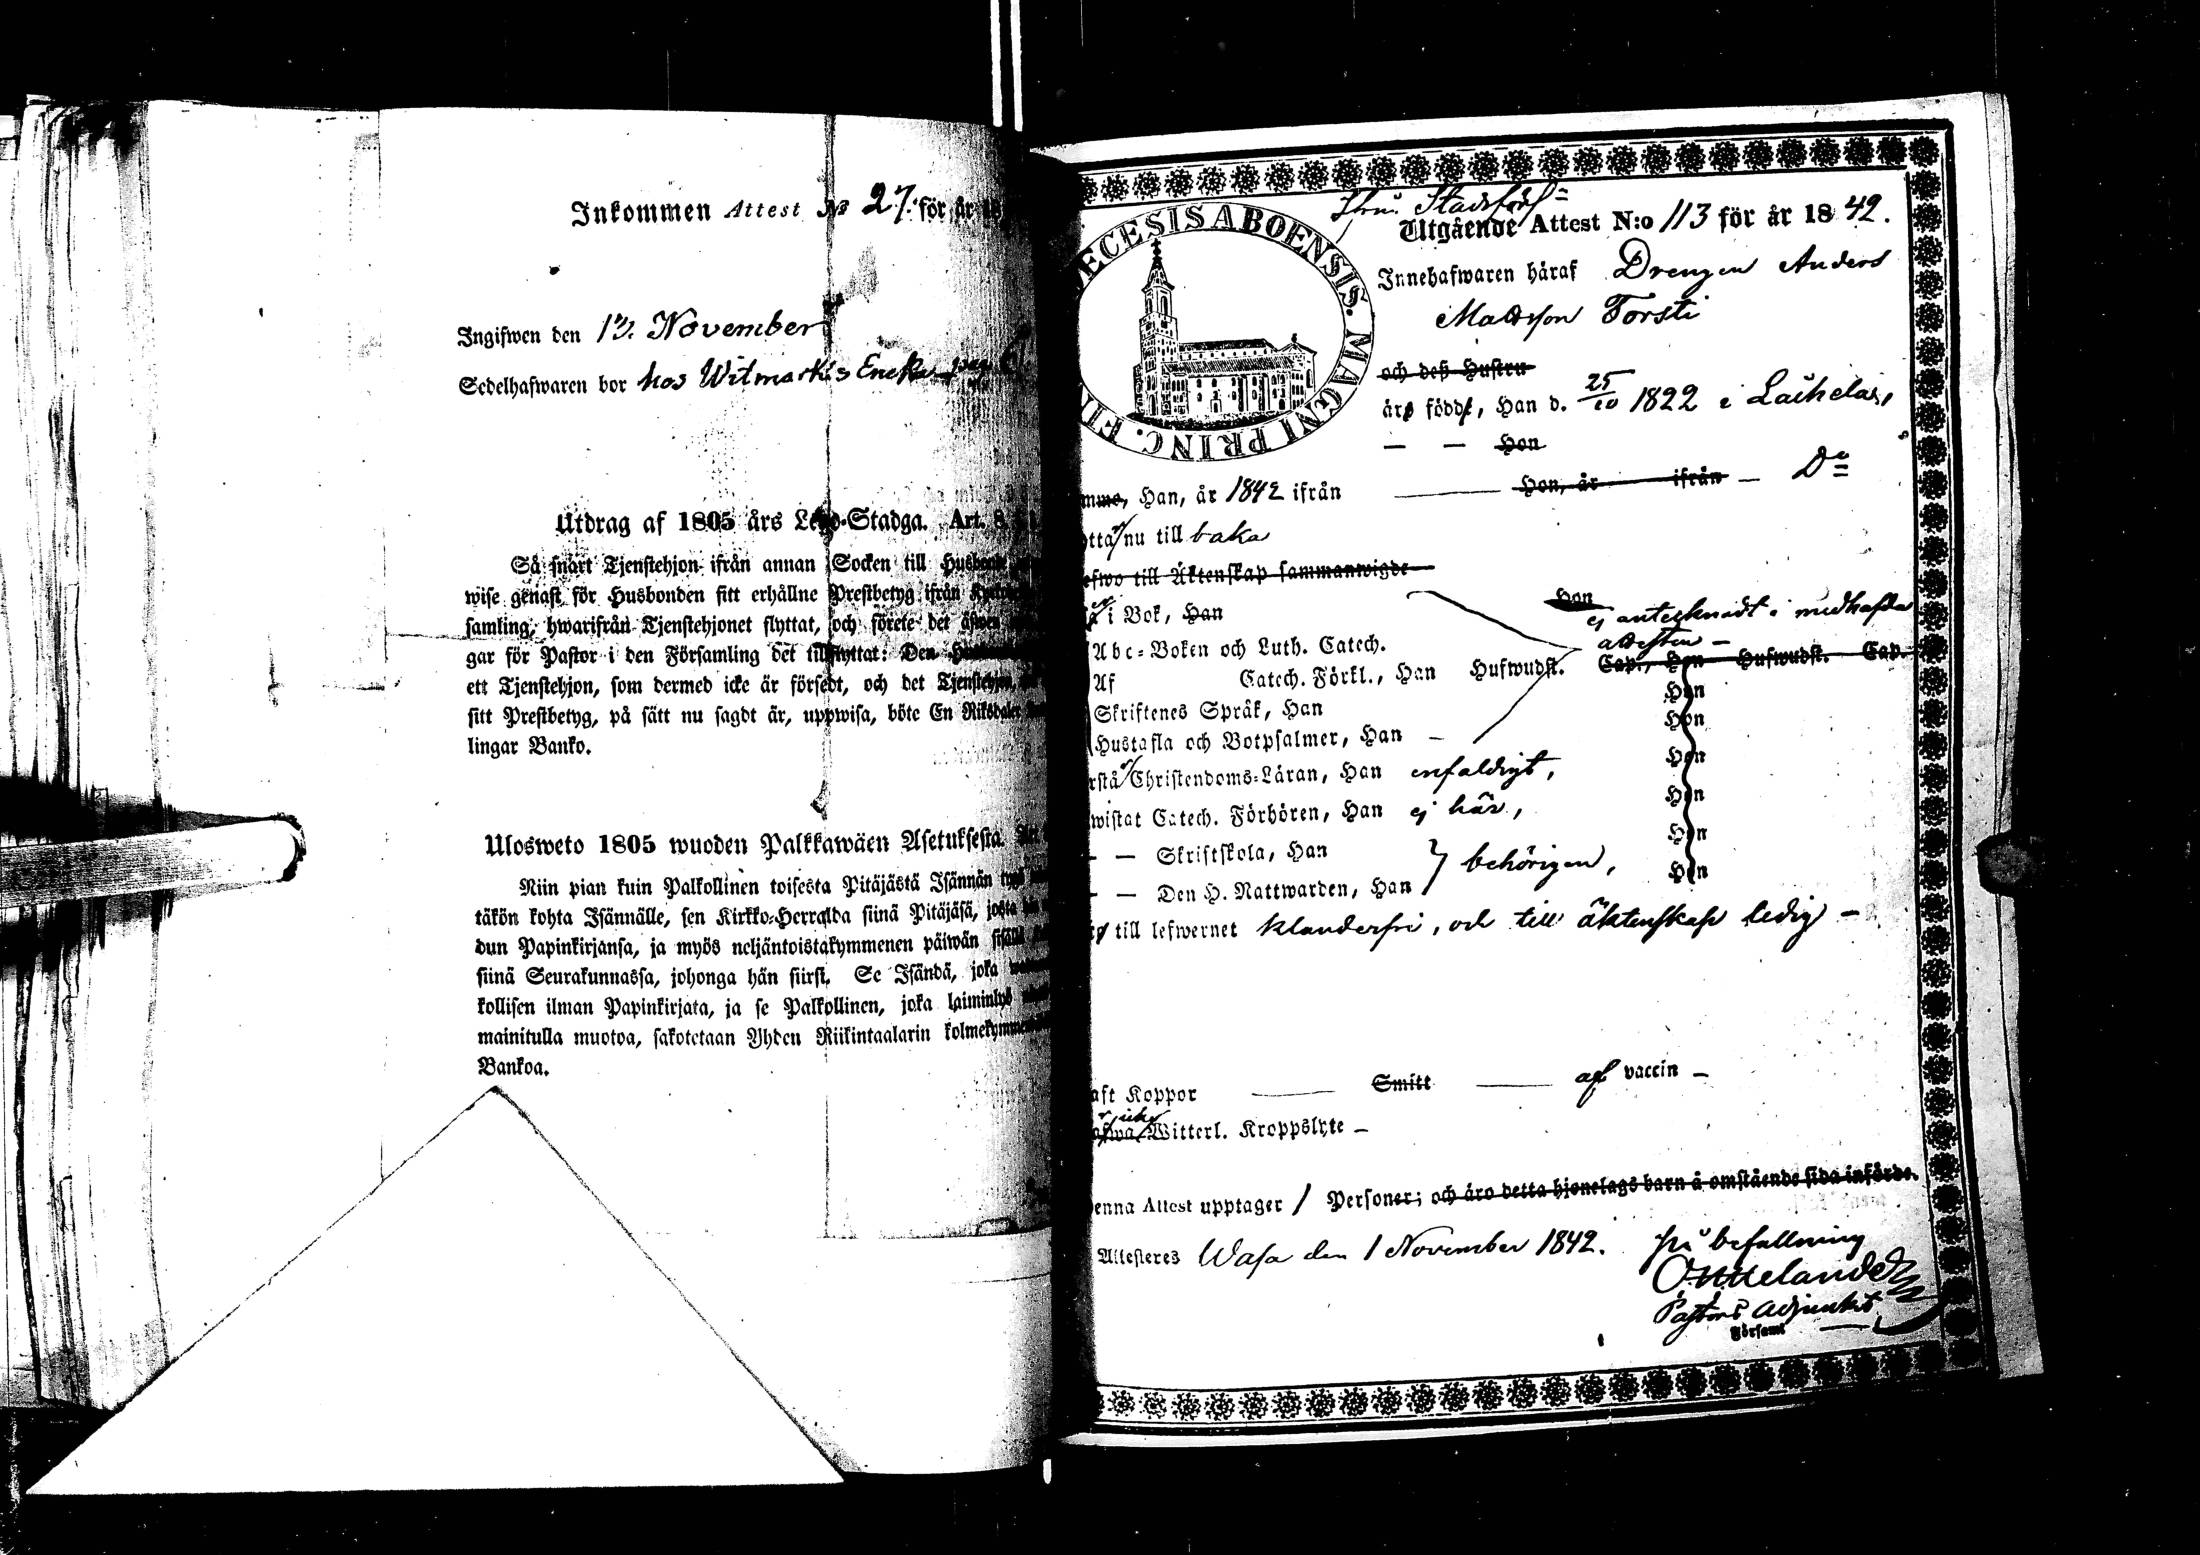 Inkommen Attest No 27. för år 18
Ingifwen den 13. November
Sedelhafwaren bor hos Witmarkis Encka pag
Utdrag af 1805 års Lego-Stadga. Art. 8.
Så snart Tjenstehjon ifrån annan Socken till Husbonde
wise genast för Husbonden sitt erhållne Prestbetyg ifrån
samling, hwarifrån Tjenstehjonet flyttat, och förete det äfwen
gar för Pastor i den Församling det tillflyttat: Den
ett Tjenstehjon, som dermed icke är försedt, och det Tjenstehjon,
sitt Prestbetyg, på sätt nu sagdt är, uppwisa, böte En Riksdaler
lingar Banko.
Ulosweto 1805 wuoden Palkkawäen Asetuksesta.
Niin pian kuin Palkollinen toisesta Pitäjästä Isännän tygö
täkön kohta Isännälle, sen Kirkko-Herralda siinä Pitäjäsä, josta
dun Papinkirjansa, ja myös neljäntoistakymmenen päiwän sisällä
siinä Seurakunnassa, johonga hän siirsi. Se Isändä, joka
kollisen ilman Papinkirjata, ja se Palkollinen, joka laiminlyö
mainitulla muotoa, sakotetaan Yhden Riikintaalarin kolmekymmen
Bankoa.
ECESIS ABOENSIS. MAGNI PRINC. FI
Utgående Attest N:o 113 för år 1842.
Innehafwaren häraf Drengen Anders
Mattsson Torsti
och deß Hustru
äro födde, Han d. 25/10 1822 i Laihela,
— — Hon
mmo, Han, år 1842 ifrån — Hon, år — ifrån — Do
otta nu till baka
efwo till Äktenskap sammanwigde
i Bok, Han Hon
ej antecknadt i medhafda
attesten —
Abc-Boken och Luth. Catech.
Af Catech. Förkl., Han Hufwudst. Cap., Hon Hufwudst. Cap.
Skriftenes Språk, Han Hon
Hustafla och Botpsalmer, Han — Hon
rstå Christendoms-Läran, Han enfaldigt, Hon
wistat Catech. Förhören, Han ej här, Hon
— — Skriftskola, Han Hon
— — Den H. Nattwarden, Han } behörigen, Hon
till lefwernet klanderfri, och till äktenskap ledig —
aft Koppor — Smitt — af vaccin —
afwa icke Witterl. Kroppslyte —
enna Attest upptager 1 Personer; och äro detta hjonelags barn å omstående sida införde.
Attesteres Wasa den 1 November 1842. På befallning
Pastors Adjunkt
Församl